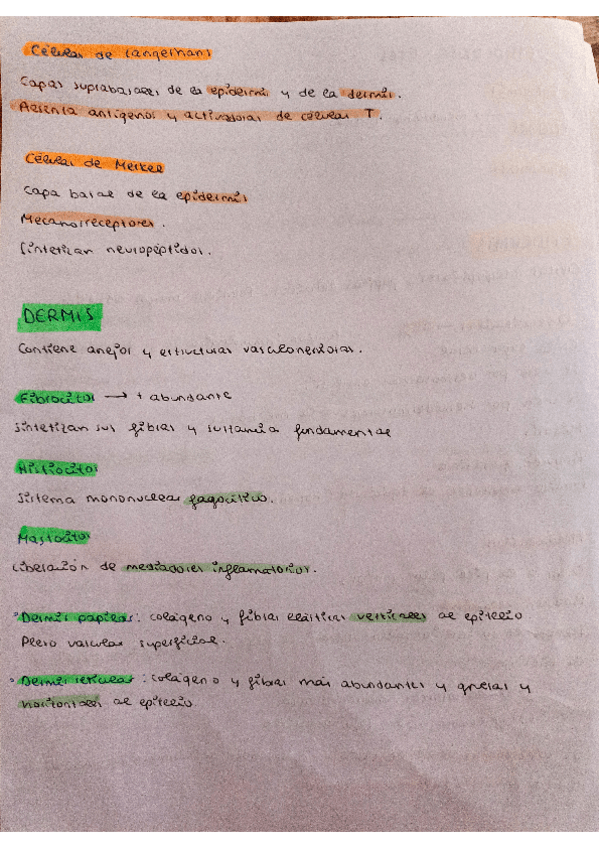 Células de Langerhans
Capas suprabasales de la epidermis y de la dermis.
Presenta antígenos y activadoras de células T.
Células de Merkel
Capa basal de la epidermis
Mecanorreceptores.
Sintetizan neuropéptidos.
DERMIS
Contiene anejos y estructuras vasculonerviosas.
Fibrocitos → + abundante
Sintetizan sus fibras y sustancia fundamental
Histiocitos
Sistema mononuclear fagocítico.
Mastocitos
Liberación de mediadores inflamatorios.
• Dermis papilar: colágeno y fibras elásticas verticales al epitelio
Plexo vascular superficial.
• Dermis reticular: colágeno y fibras más abundantes y gruesas y
horizontales al epitelio